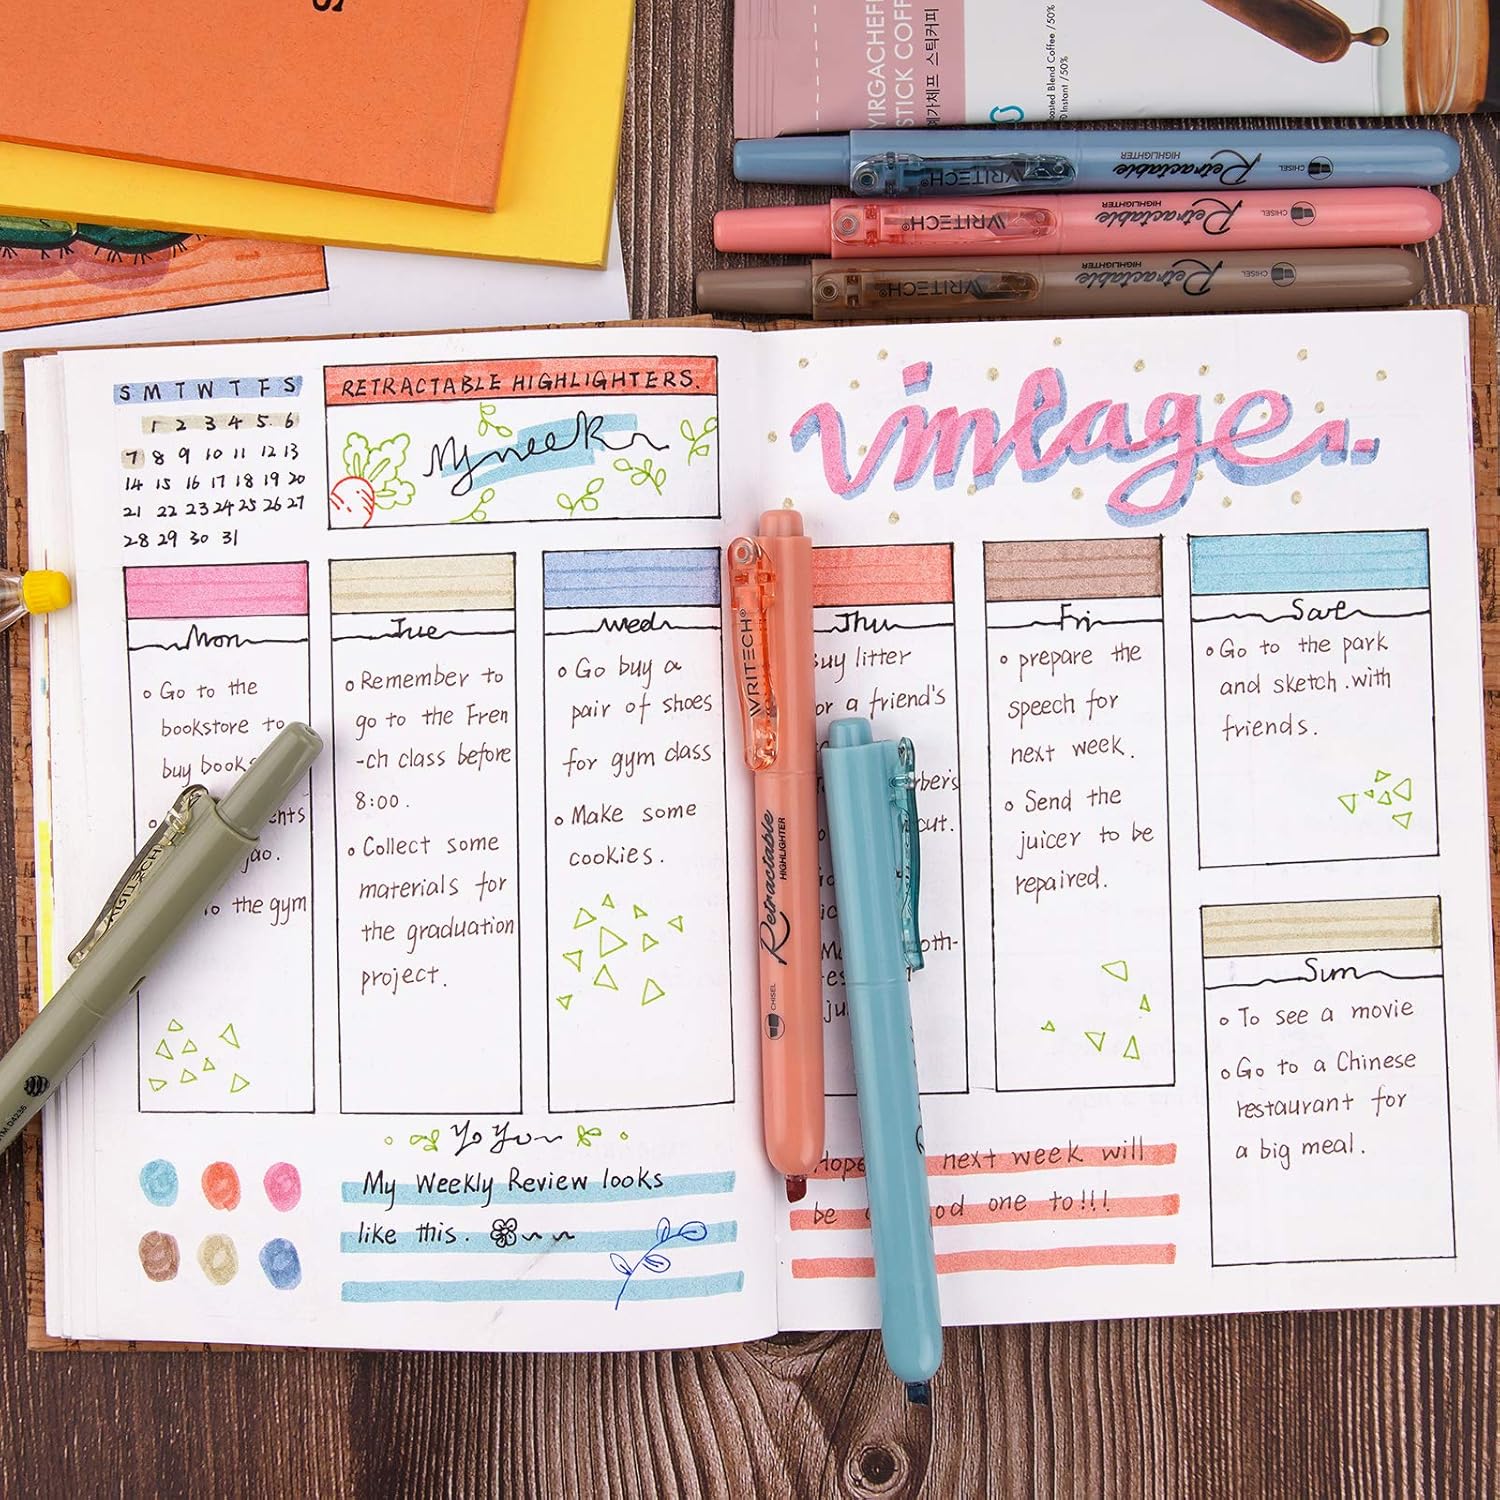 S
YIRGACHEFFE
STICK COFF
예가체프 스틱커피
Roasted Blend Coffee / 50%
Instant / 50%
WRITECH® Retractable HIGHLIGHTER CHISEL
WRITECH® Retractable HIGHLIGHTER CHISEL
WRITECH® Retractable HIGHLIGHTER CHISEL
S M T W T F S
1 2 3 4 5 6
7 8 9 10 11 12 13
14 15 16 17 18 19 20
21 22 23 24 25 26 27
28 29 30 31
RETRACTABLE HIGHLIGHTERS.
My week
vintage
Mon
Go to the
bookstore to
buy books
the gym
Tue
Remember to
go to the Fren
-ch class before
8:00.
Collect some
materials for
the graduation
project.
Wed
Go buy a
pair of shoes
for gym class
Make some
cookies.
Thu
buy litter
a friend's
Fri
prepare the
speech for
next week.
Send the
juicer to be
repaired.
Sat
Go to the park
and sketch.with
friends.
Sun
To see a movie
Go to a Chinese
restaurant for
a big meal.
WRITECH®
Retractable
HIGHLIGHTER
CHISEL
WRITECH
04236
Yo Yo
My Weekly Review looks
like this.
Hope next week will
be one to!!!